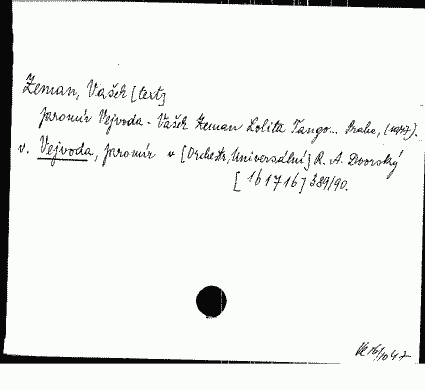 Zeman, Vašek [text]
Jaromír Vejvoda - Vašek Zeman Lolita Tango... Praha, (1947).
v. Vejvoda, Jaromír v [Orchestr, Universální] R. A. Dvorský
[161716] 389/90.
16/10 47